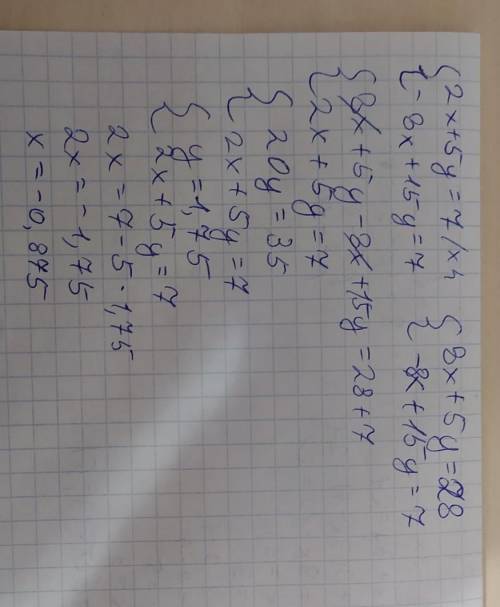 { 2x+5y=7 /×4 { 8x+5y=28
{ -8x+15y=7 { -8x+15y=7
{ 8x+5y-8x+15y=28+7
{ 2x+5y=7
{ 20y=35
{ 2x+5y=7
{ y=1,75
{ 2x+5y=7
2x=7-5·1,75
2x=-1,75
x=-0,875